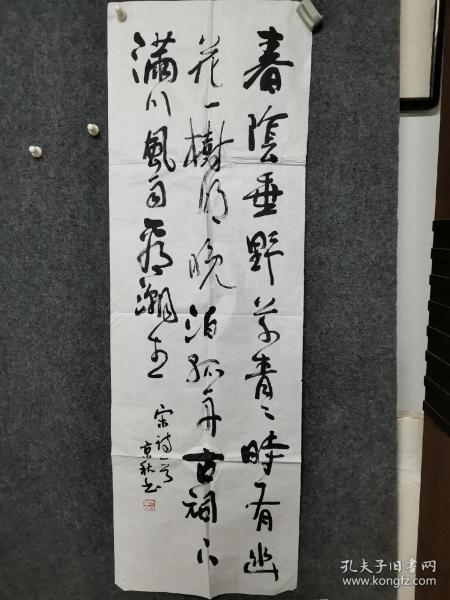 春陰垂野草青〻時有幽
花一樹明晚泊孤舟古祠下
滿川風雨看潮生
宋詩一首
京秋书
孔夫子旧书网
www.kongfz.com